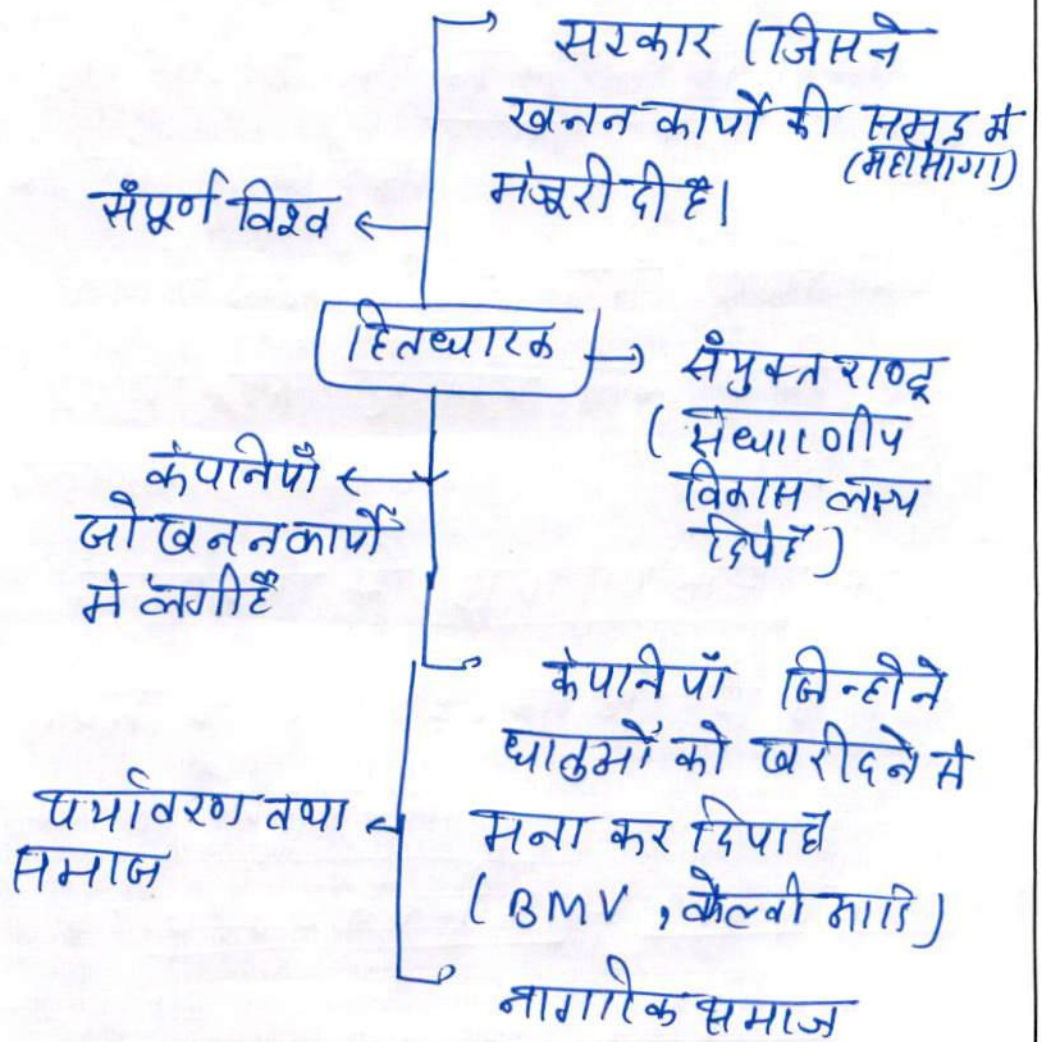 सरकार (जिसने
खनन कार्यों की समुद्र में
(महासागर)
मंजूरी दी है।
संपूर्ण विश्व
हितधारक
संयुक्त राष्ट्र
(संधारणीय
विकास लक्ष्य
दिये हैं)
कंपनियाँ
जो खनन कार्यों
में लगी हैं
कंपनियाँ जिन्होंने
धातुओं को खरीदने से
मना कर दिया है
(BMV, वोल्वो आदि)
पर्यावरण तथा
समाज
नागरिक समाज